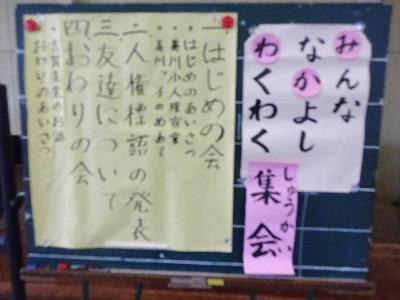 みんな
なかよし
わくわく
しゅうかい
集会
一はじめの会
・はじめのあいさつ
・美川小人権宣言
・美川っ子のめあて
二人権標語の発表
三友達について
四おわりの会
おわりのあいさつ